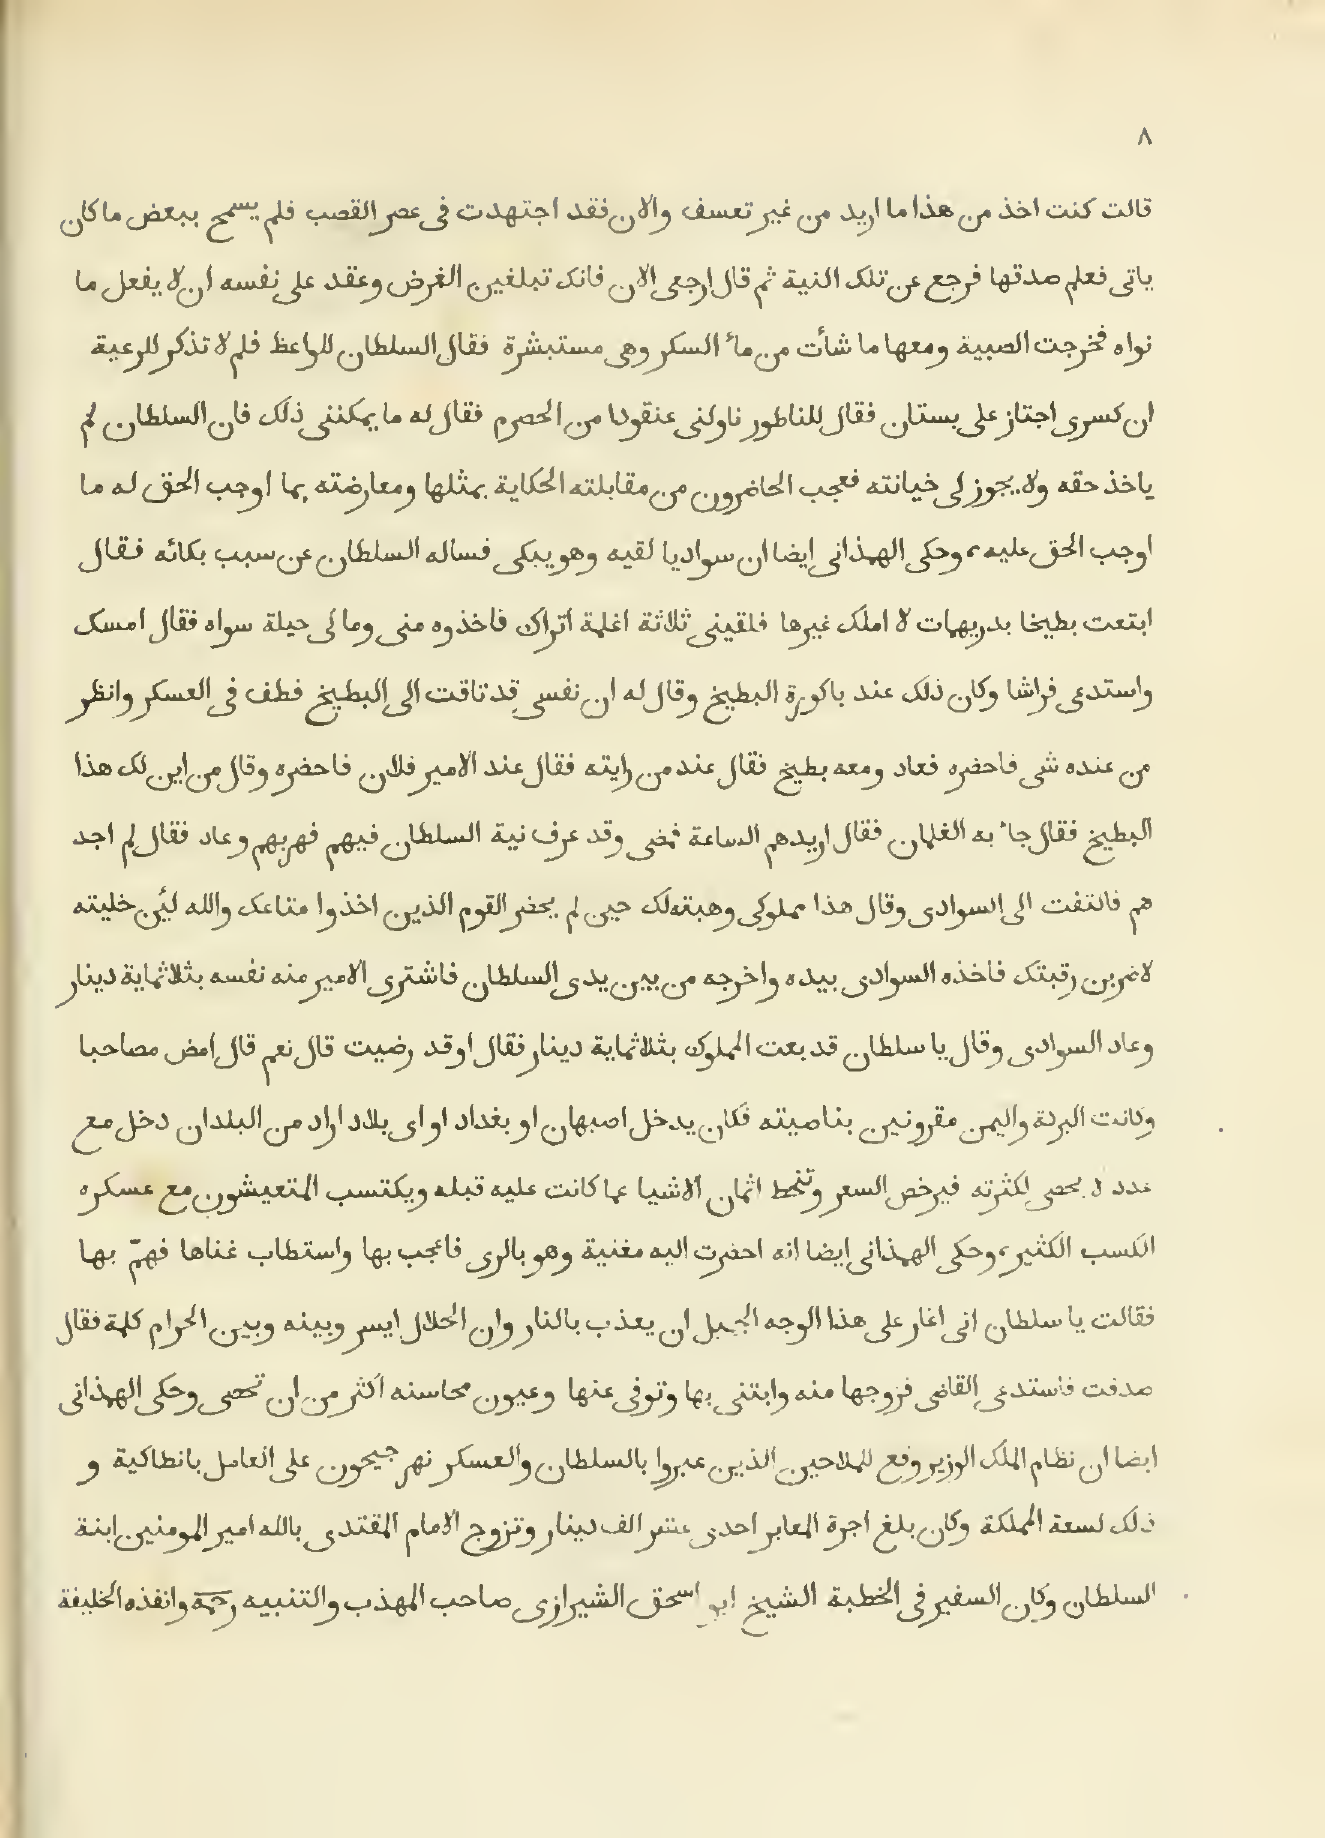 ٨
قالت كنت اخذ من هذا ما اريد من غير تعسف والان فقد اجتهدت فى عصر القصب فلم يسمح ببعض ما كان
ياتى فعلم صدقها فرجع عن تلك النية ثم قال ارجعى الان فانك تبلغين الغرض وعقد على نفسه ان لا يفعل ما
نواه فخرجت الصبية ومعها ما شأت من مأ السكر وهى مستبشرة فقال السلطان للواعظ فلم لا تذكر للرعية
ان كسرى اجتاز على بستان فقال للناطور ناولنى عنقودا من الحصرم فقال له ما يمكننى ذلك فان السلطان لم
ياخذ حقه ولا يجوز لى خيانته فعجب الحاضرون من مقابلته الحكاية بمثلها ومعارضته بما اوجب الحق له ما
اوجب الحق عليه، وحكى الهمذانى ايضا ان سواديا لقيه وهو يبكى فساله السلطان عن سبب بكائه فقال
ابتعت بطيخا بدريهمات لا املك غيرها فلقينى ثلاثة اغلمة اتراك فاخذوه منى وما لى حيلة سواه فقال امسك
واستدعى فراشا وكان ذلك عند باكورة البطيخ وقال له ان نفسى قد تاقت الى البطيخ فطف فى العسكر وانظر
من عنده شى فاحضره فعاد ومعه بطيخ فقال عند من رايته فقال عند الامير فلان فاحضره وقال من اين لك هذا
البطيخ فقال جأ به الغلمان فقال اريدهم الساعة فمضى وقد عرف نية السلطان فيهم فهربهم وعاد فقال لم اجد
هم فالتفت الى السوادى وقال هذا مملوكى وهبته لك حين لم يحضر القوم الذين اخذوا متاعك والله لئن خليته
لاضربن رقبتك فاخذه السوادى بيده واخرجه من بين يدى السلطان فاشترى الامير منه نفسه بثلاثماية دينار
وعاد السوادى وقال يا سلطان قد بعت المملوك بثلاثماية دينار فقال اوقد رضيت قال نعم قال امض مصاحبا
وكانت البركة واليمن مقرونين بناصيته فكان يدخل اصبهان او بغداد او اى بلاد اراد من البلدان دخل مع
عدد لا يحصى لكثرته فيرخص السعر وتنحط اثمان الاشيا عما كانت عليه قبله ويكتسب المتعيشون مع عسكره
الكسب الكثير، وحكى الهمذانى ايضا انه احضرت اليه مغنية وهو بالرى فاعجب بها واستطاب غناها فهمّ بها
فقالت يا سلطان انى اغار على هذا الوجه الجميل ان يعذب بالنار وان الحلال ايسر وبينه وبين الحرام كلمة فقال
صدقت فاستدعى القاضى فزوجها منه وابتنى بها وتوفى عنها وعيون محاسنه اكثر من ان تحصى وحكى الهمذانى
ايضا ان نظام الملك الوزير وقع للملاحين الذين عبروا بالسلطان والعسكر نهر جيحون على العامل بانطاكية و
ذلك لسعة المملكة وكان بلغ اجرة المعابر احدى عشر الف دينار وتزوج الامام المقتدى بالله امير المومنين ابنة
السلطان وكان السفير فى الخطبة الشيخ ابو اسحق الشيرازى صاحب المهذب والتنبيه رحمة وانفذه الخليفة